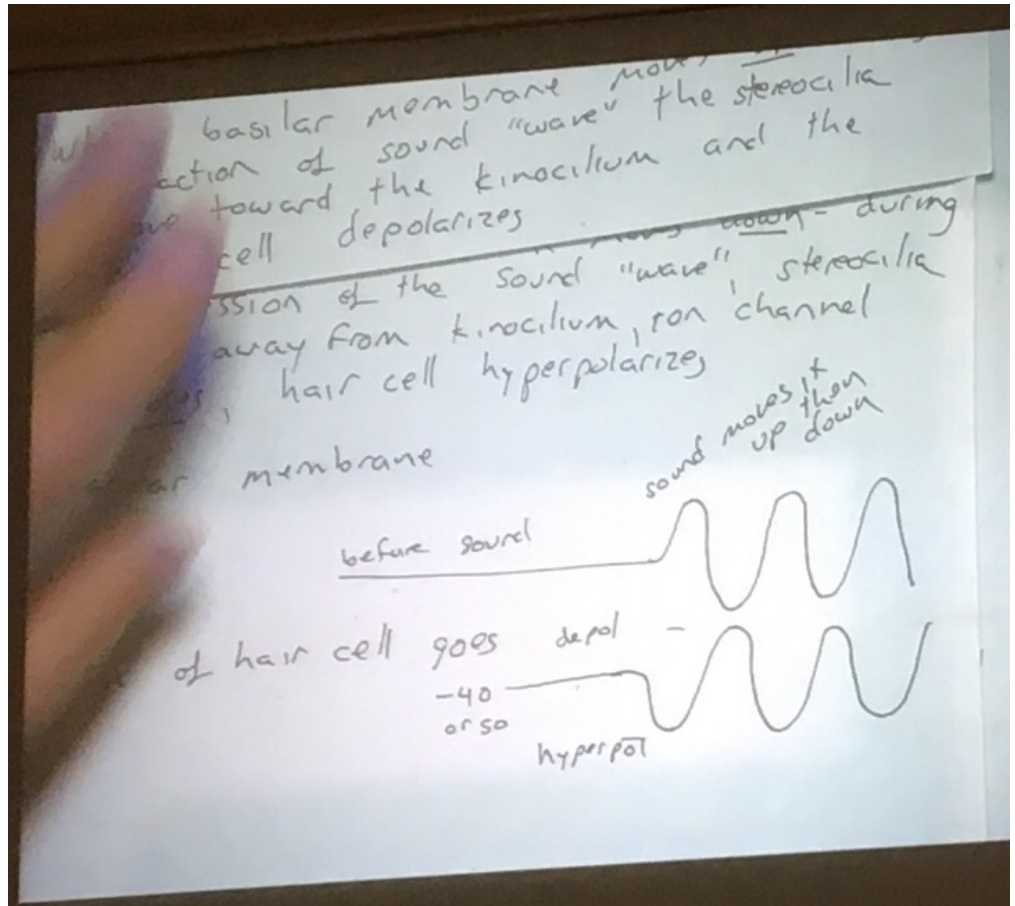 basilar membrane
action of sound "wave" the stereocilia
toward the kinocilium and the
cell depolarizes
down - during
ssion of the sound "wave", stereocilia
away from kinocilium, ion channel
, hair cell hyperpolarizes
membrane
sound moves it
up then
down
before sound
of hair cell goes depol -
-40
or so
hyperpol